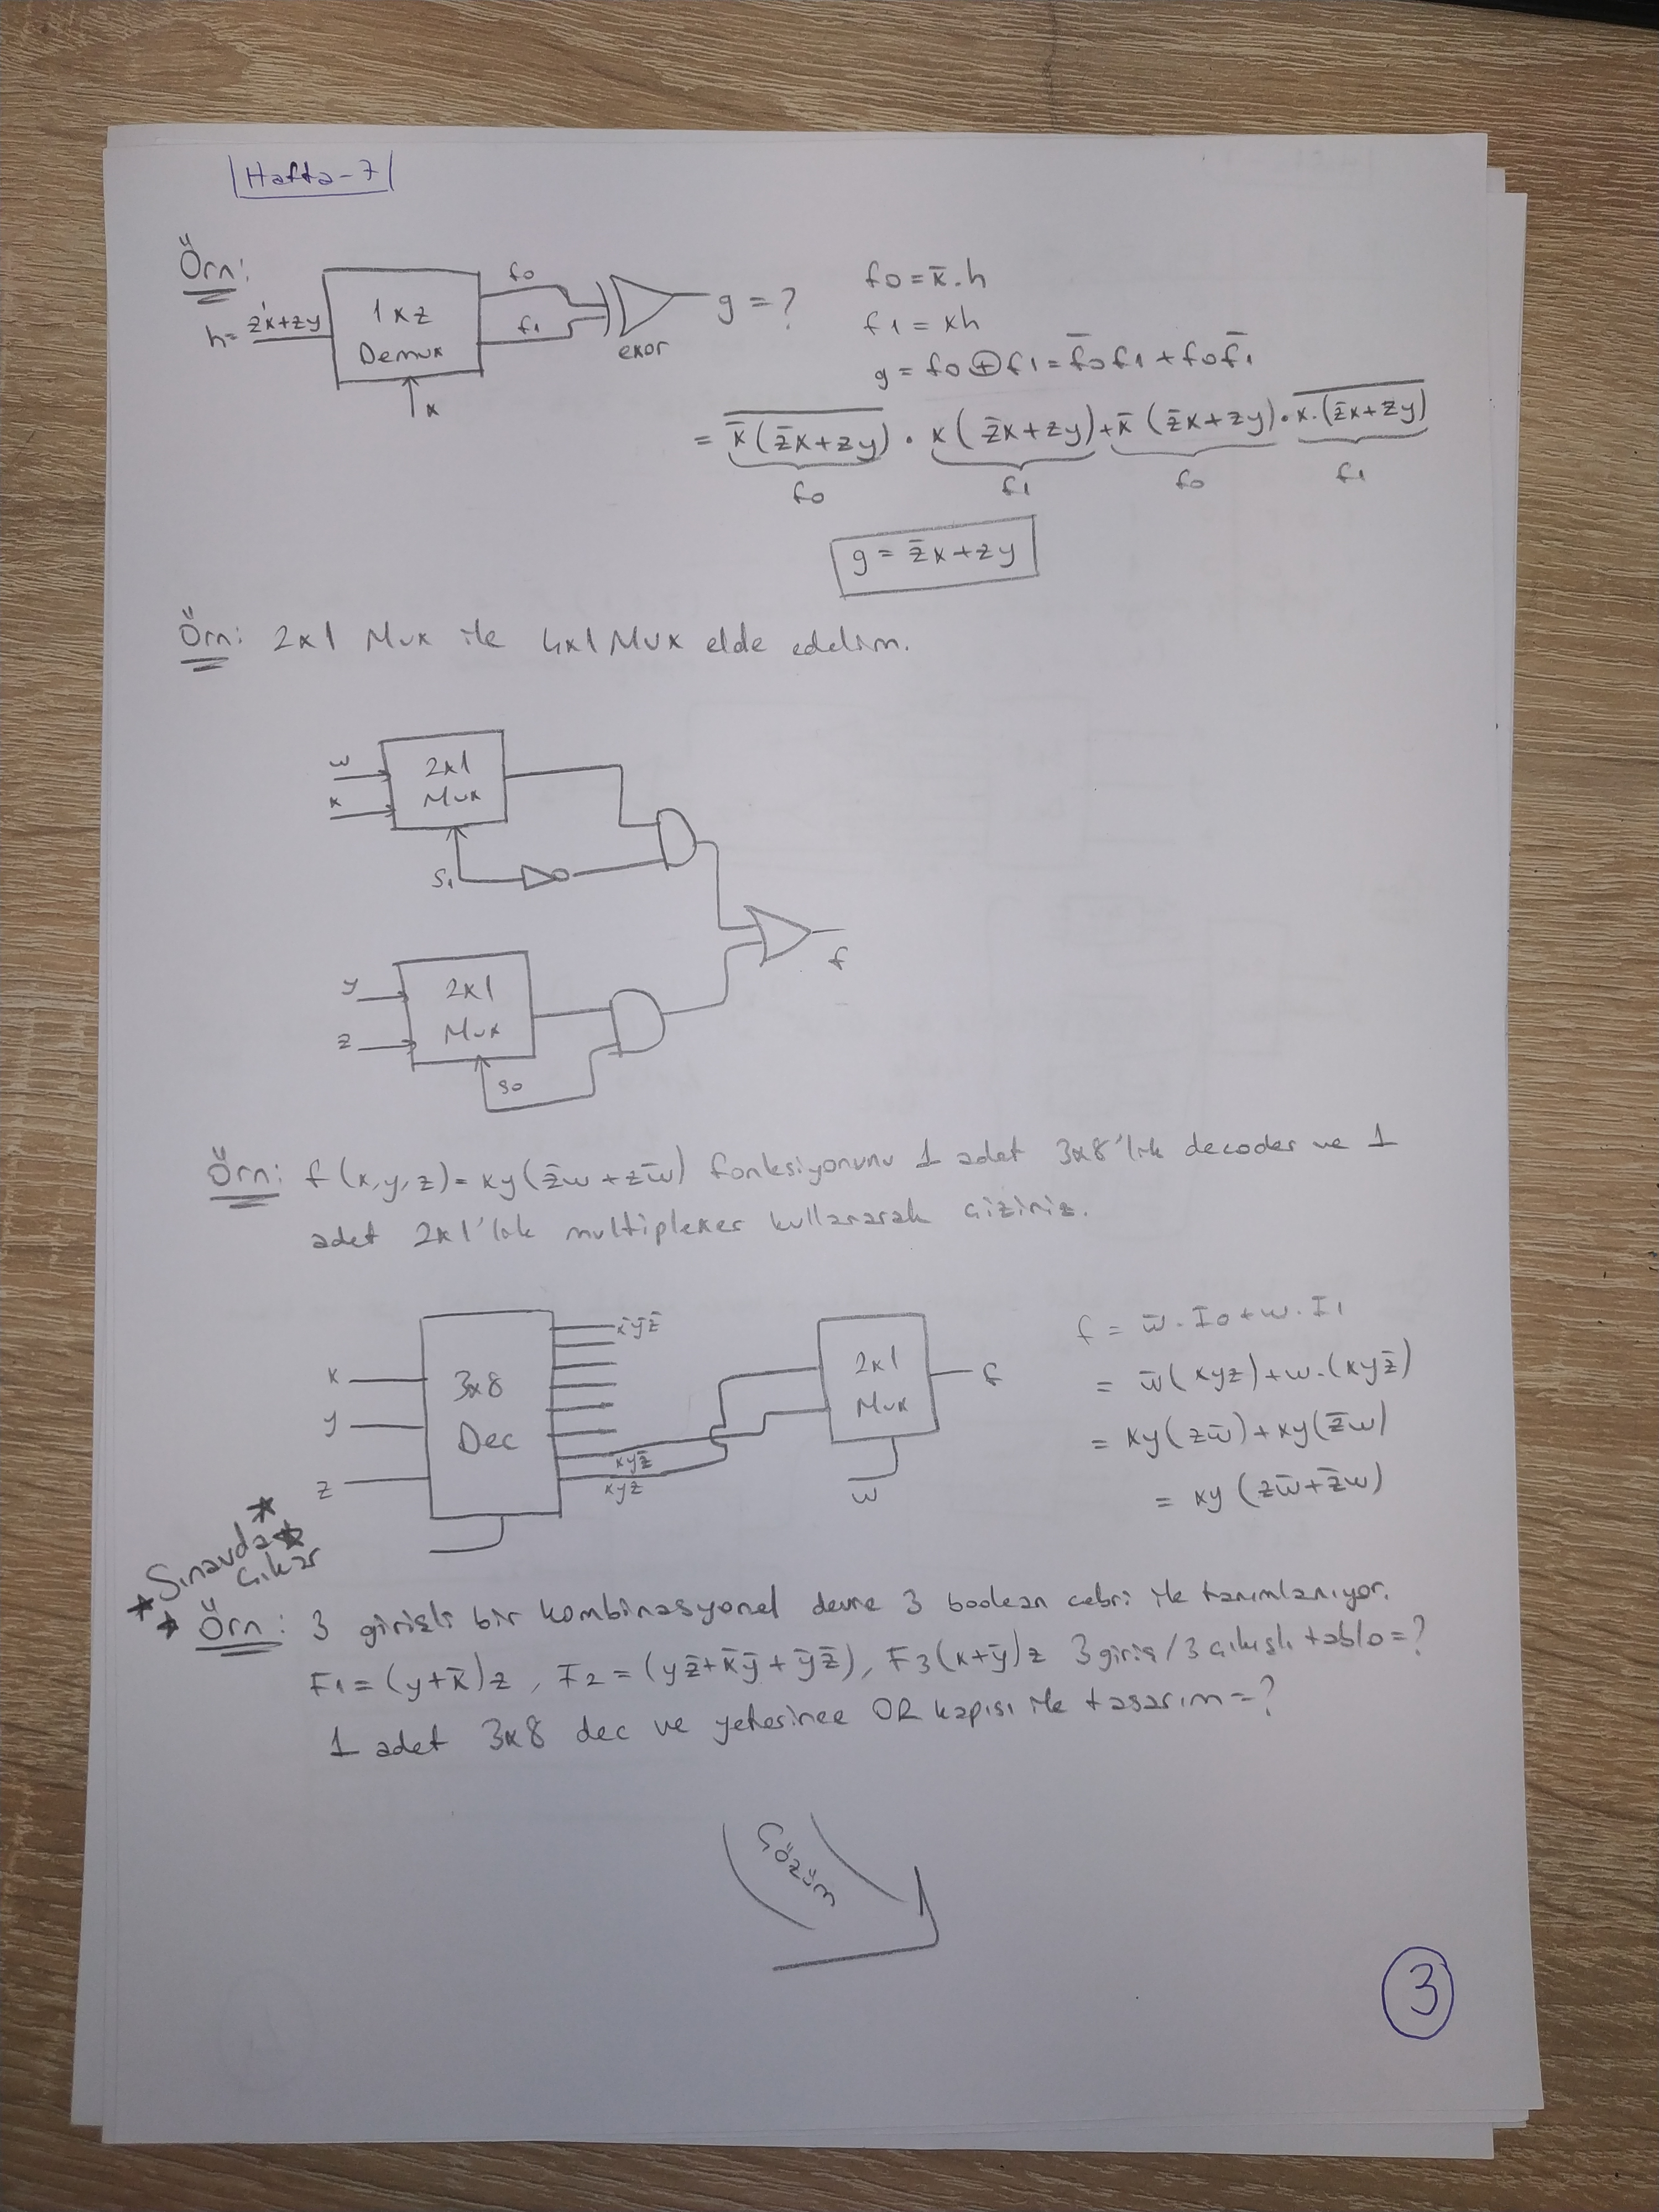 Hafta-7
Örn:
h= z̄x+zy
1x2
Demux
x
f0
f1
exor
g=?
f0=x̄.h
f1=xh
g=f0⊕f1=f̄0f1+f0f̄1
=x̄(z̄x+zy).x(z̄x+zy)+x̄(z̄x+zy).x.(z̄x+zy)
f0 f1 f0 f1
g=z̄x+zy
Örn: 2x1 Mux ile 4x1 Mux elde edelim.
w
x
2x1
Mux
S1
y
z
2x1
Mux
S0
f
Örn: f(x,y,z)=xy(z̄w+zw̄) fonksiyonunu 1 adet 3x8'lik decoder ve 1
adet 2x1'lik multiplexer kullanarak çiziniz.
x
y
z
3x8
Dec
x̄ȳz̄
xyz̄
xyz
2x1
Mux
w
f
f=w̄.I0+w.I1
=w̄(xyz)+w.(xyz̄)
=xy(zw̄)+xy(z̄w)
=xy(zw̄+z̄w)
Sınavda
Çıkar
Örn: 3 girişli bir kombinasyonel devre 3 boolean cebri ile tanımlanıyor.
F1=(y+x̄)z, F2=(yz̄+x̄ȳ+ȳz̄), F3(x+ȳ)z 3 giriş/3 çıkışlı tablo=?
1 adet 3x8 dec ve yeterince OR kapısı ile tasarım=?
Çözüm
3